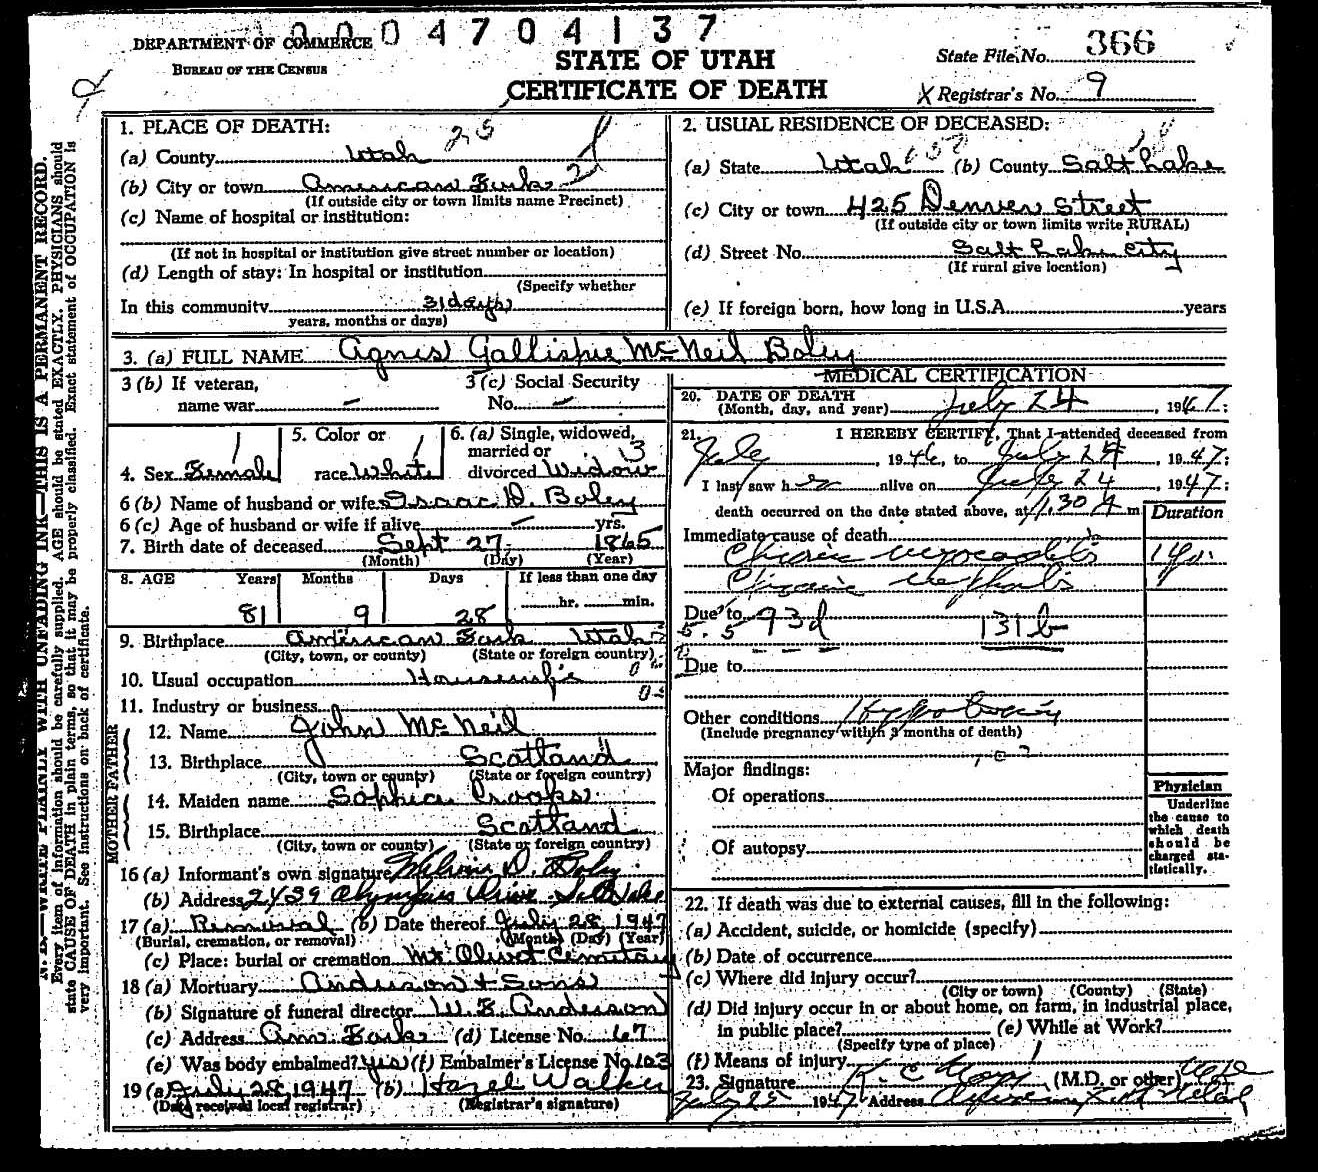 0004704137
DEPARTMENT OF COMMERCE
BUREAU OF THE CENSUS
STATE OF UTAH
CERTIFICATE OF DEATH
State File No. 366
X Registrar's No. 9
N. B.—WRITE PLAINLY WITH UNFADING INK—THIS IS A PERMANENT RECORD.
Every item of information should be carefully supplied. AGE should be stated EXACTLY. PHYSICIANS should
state CAUSE OF DEATH in plain terms, so that it may be properly classified. Exact statement of OCCUPATION is
very important. See instructions on back of certificate.
1. PLACE OF DEATH: 25
(a) County Utah
(b) City or town American Fork
(If outside city or town limits name Precinct)
(c) Name of hospital or institution:
(If not in hospital or institution give street number or location)
(d) Length of stay: In hospital or institution
(Specify whether
In this community 31 days
years, months or days)
2. USUAL RESIDENCE OF DECEASED:
(a) State Utah (b) County Salt Lake
(c) City or town 425 Denver Street
(If outside city or town limits write RURAL)
(d) Street No. Salt Lake City
(If rural give location)
(e) If foreign born, how long in U.S.A. years
3. (a) FULL NAME Agnes Gallispie McNeil Boley
3 (b) If veteran,
name war –
3 (c) Social Security
No. –
4. Sex Female
5. Color or
race White
6. (a) Single, widowed,
married or
divorced Widow
6 (b) Name of husband or wife Isaac D. Boley
6 (c) Age of husband or wife if alive – yrs.
7. Birth date of deceased Sept 27 1865
(Month) (Day) (Year)
8. AGE Years Months Days If less than one day
81 9 28 hr. min.
9. Birthplace American Fork Utah
(City, town, or county) (State or foreign country)
10. Usual occupation Housewife
11. Industry or business
FATHER
12. Name John McNeil
13. Birthplace Scotland
(City, town or county) (State or foreign country)
MOTHER
14. Maiden name Sophia Crooks
15. Birthplace Scotland
(City, town or county) (State or foreign country)
16 (a) Informant's own signature Melvin D. Boley
(b) Address 2439 Olympus Drive S. Lake
17 (a) Removal (b) Date thereof July 28 1947
(Burial, cremation, or removal) (Month) (Day) (Year)
(c) Place: burial or cremation Mt. Olivet Cemetary
18 (a) Mortuary Anderson & Sons
(b) Signature of funeral director W. E. Anderson
(c) Address Am. Fork (d) License No. 67
(e) Was body embalmed? yes (f) Embalmer's License No. 103
19 (a) July 28, 1947 (b) Hazel Walker
(Date received local registrar) (Registrar's signature)
MEDICAL CERTIFICATION
20. DATE OF DEATH
(Month, day, and year) July 24, 1947:
21. I HEREBY CERTIFY, That I attended deceased from
July, 1946, to July 24, 1947:
I last saw her alive on July 24 1947:
death occurred on the date stated above, at 1:30 A m
Duration
Immediate cause of death
Chronic myocarditis 1 yr.
Chronic nephritis
Due to 93d 131b
Due to
Other conditions
(Include pregnancy within 3 months of death)
Major findings:
Of operations
Of autopsy
Physician
Underline
the cause to
which death
should be
charged sta-
tistically.
22. If death was due to external causes, fill in the following:
(a) Accident, suicide, or homicide (specify)
(b) Date of occurrence
(c) Where did injury occur?
(City or town) (County) (State)
(d) Did injury occur in or about home, on farm, in industrial place,
in public place? (e) While at Work?
(Specify type of place)
(f) Means of injury
23. Signature (M.D. or other)
July 25 1947 Address American Fork Utah